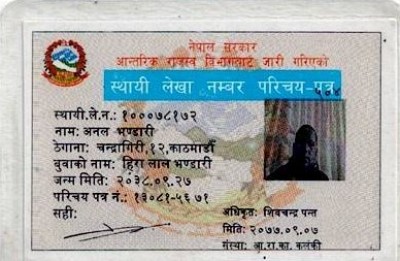 नेपाल सरकार
आन्तरिक राजस्व विभागबाट जारी गरिएको
स्थायी लेखा नम्बर परिचय-पत्र
स्थायी.ले.न.: १०००७८१७२
नाम: अनल भण्डारी
ठेगाना: चन्द्रागिरी,१२,काठमाडौं
बुवाको नाम: हिरा लाल भण्डारी
जन्म मिति: २०३८.०९.२७
परिचय पत्र नं.: १३०८१-५६७१
सही:
अधिकृत: शिवचन्द्र पन्त
मिति: २०७७.०९.०७
संस्था: आ.रा.का. कलंकी